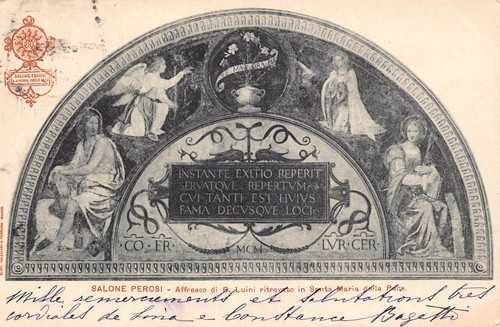 SALONE PEROSI
INSTANTE EXITIO REPERIT
SERVATQVE REPERTVM
CVI TANTI EST HVIVS
FAMA DECVSQVE LOCI
CO·ER· MCM LVR·CER
SALONE PEROSI - Affresco di B. Luini ritrovato in Santa Maria della Pace.
Mille remerciements et salutations très
cordiales de Lina e Constance Bagetti